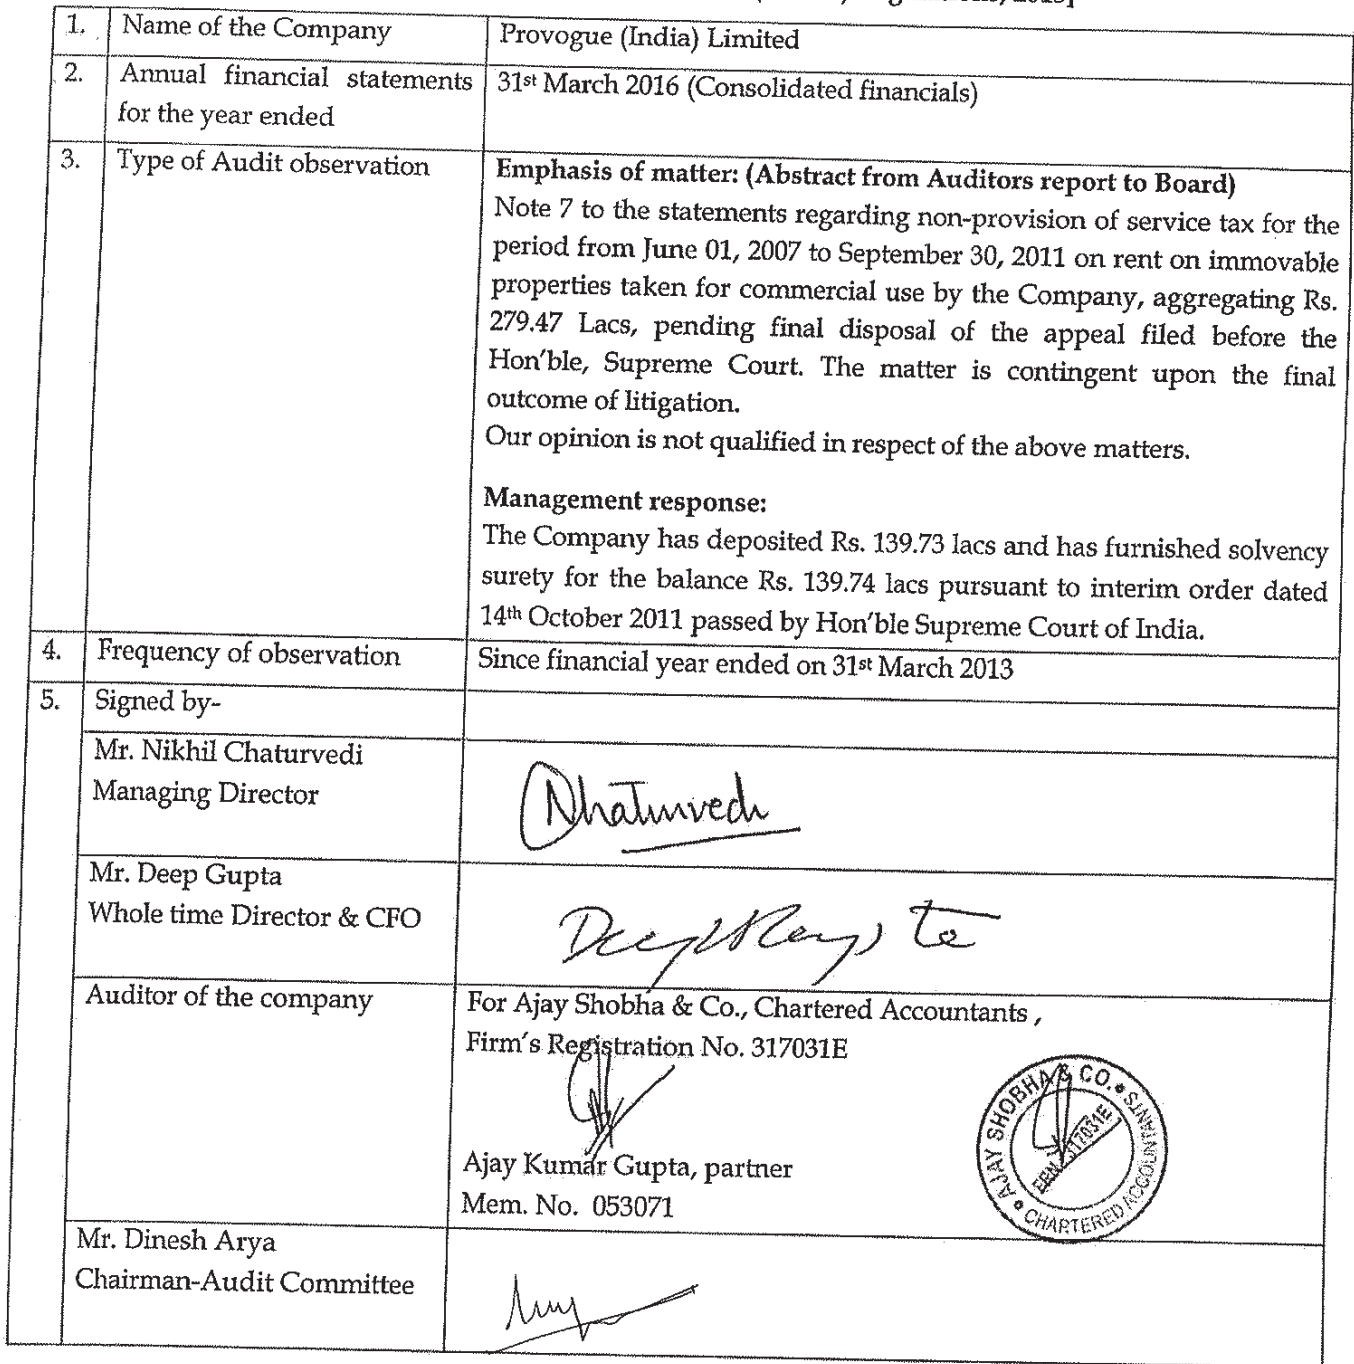 1. Name of the Company Provogue (India) Limited
2. Annual financial statements 31st March 2016 (Consolidated financials)
for the year ended
3. Type of Audit observation Emphasis of matter: (Abstract from Auditors report to Board)
Note 7 to the statements regarding non-provision of service tax for the
period from June 01, 2007 to September 30, 2011 on rent on immovable
properties taken for commercial use by the Company, aggregating Rs.
279.47 Lacs, pending final disposal of the appeal filed before the
Hon'ble, Supreme Court. The matter is contingent upon the final
outcome of litigation.
Our opinion is not qualified in respect of the above matters.
Management response:
The Company has deposited Rs. 139.73 lacs and has furnished solvency
surety for the balance Rs. 139.74 lacs pursuant to interim order dated
14th October 2011 passed by Hon'ble Supreme Court of India.
4. Frequency of observation Since financial year ended on 31st March 2013
5. Signed by-
Mr. Nikhil Chaturvedi
Managing Director
Mr. Deep Gupta
Whole time Director & CFO
Auditor of the company For Ajay Shobha & Co., Chartered Accountants ,
Firm's Registration No. 317031E
AJAY SHOBHA & CO.
CHARTERED ACCOUNTANTS
317031E
Ajay Kumar Gupta, partner
Mem. No. 053071
Mr. Dinesh Arya
Chairman-Audit Committee